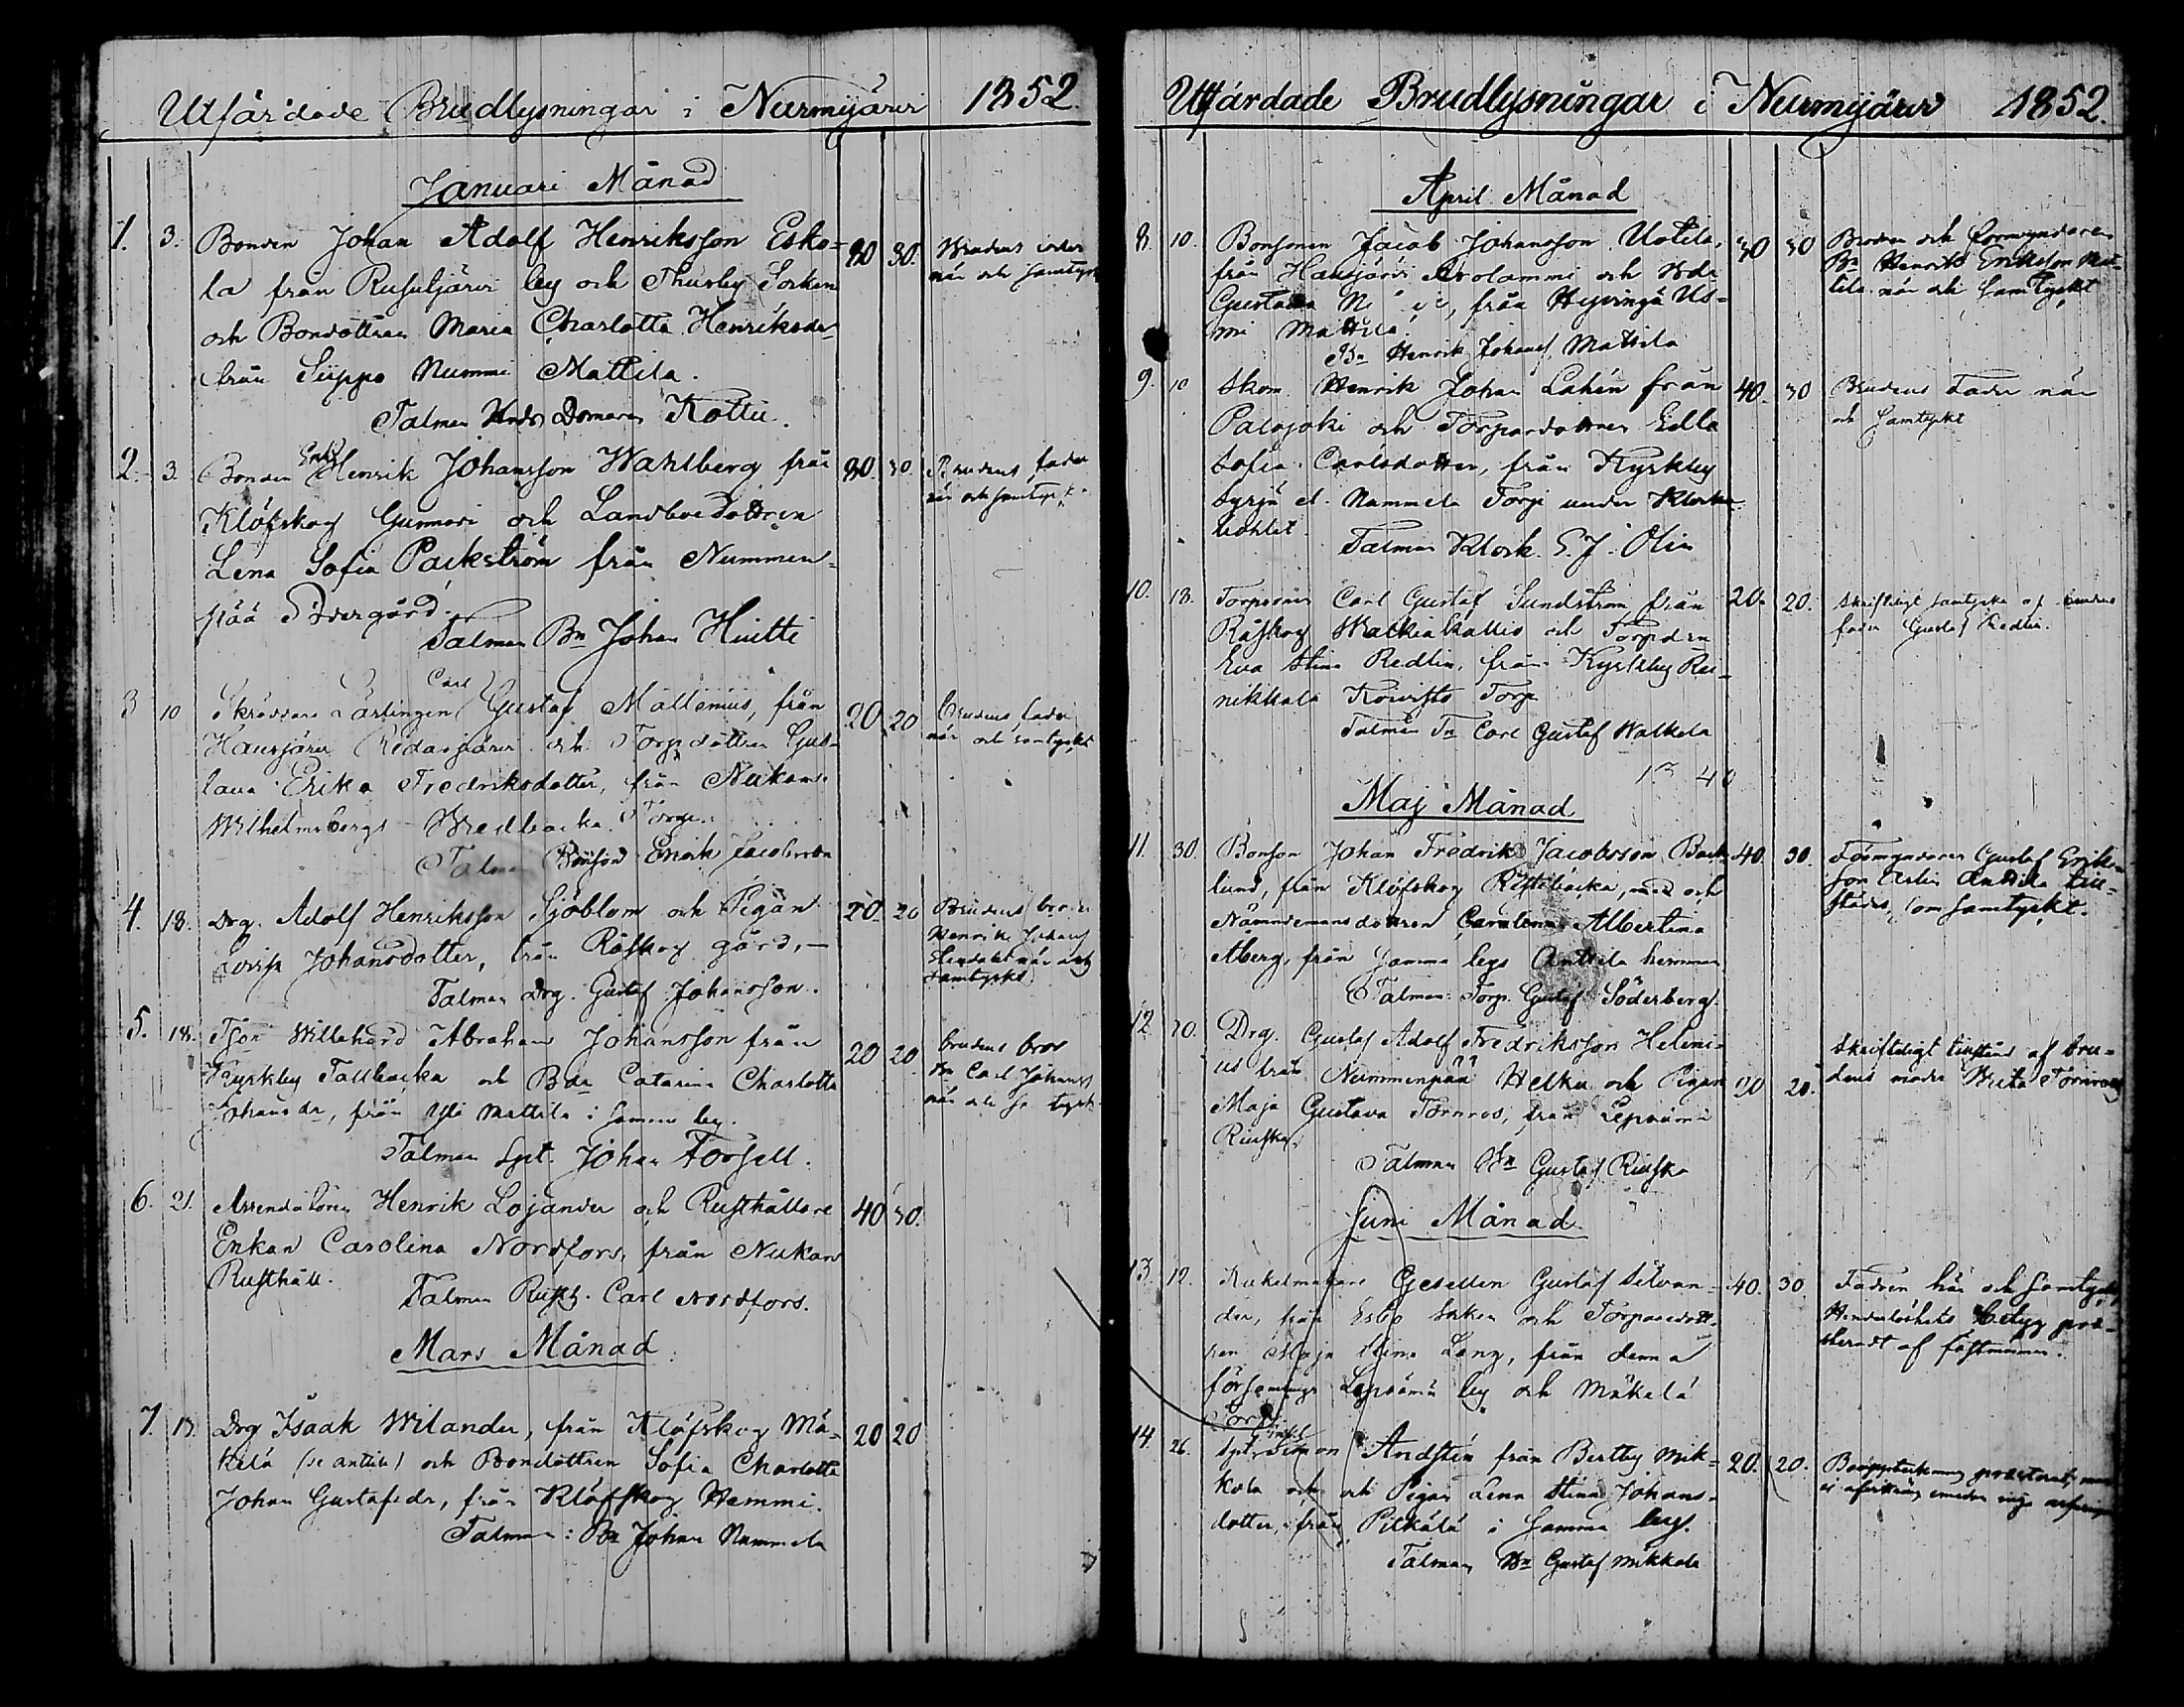 Utfärdade Brudlysningar i Nurmijärvi 1852.
Januari Månad
1. 3. Bonden Johan Adolf Henriksson Esko-
la från Rusuljärvi by och Thusby Socken
och Bondottren Maria Charlotta Henriksdr
från Siippo Nummi Mattila.
Talman Domaren Kottu.
30. Brudens
när och samtyckt
2. 3. Bonden Enkl Henrik Johansson Wahlberg från
Klöfskog Gunnari och Landboedottren
Lena Sofia Packström från Nummen-
pää Södergård.
Talman Bn Johan Huitti
30. 30. Brudens fader
när och samtyckt
3 10 Skräddare Lärlingen Carl Gustaf Mallenius, från
Hausjärvi Ridasjärvi och Torpdottren Gus-
tava Erika Fredriksdotter, från Nukari
Wilhelmsbergs Bredbacka Torp.
Talman Bonson Henrik Jacobsson
20 20 Brudens fader
när och samtyckt
4. 18. Drg. Adolf Henriksson Sjöblom och Pigan
Lovisa Johansdotter, från Råskog gård,-
Talman Drg. Gustaf Johansson.
20. 20 Brudens broder
Henrik Johans
när och
samtyckt
5. 18. Tson Willehard Abraham Johansson från
Kyrkby Tallbacka och Bdr Catarina Charlotta
Johansdr, från Yli Mattila i samma by.
Talman Spt. Johan Forsell.
20 20 brudens bror
Bn Carl Johans
när och
6. 21. Arrendatorn Henrik Lojander och Rusthållare
Enkan Carolina Nordfors, från Nukari
Rusthåll.
Talman Rusth. Carl Nordfors.
40 30.
Mars Månad
7. 13. Drg Isaak Wilander, från Klöfskog Mä-
kelä (se attest) och Bondottren Sofia Charlotta
Johan Gustafsdr, från Klöfskog Hemmi.
Talman: Bn Johan Nummela
20 20
Utfärdade Brudlysningar i Nurmijärvi 1852.
April Månad
8. 10. Bonsonen Jacob Johansson Uotila,
från Hausjärvi Arolammi och Bdr
Gustava, från Hyvingä Us-
mi Mattila.
Bn Henrik Johanss. Mattila
30 30 Brodren och förmyndaren
Bn Henrik Eriksson Mat-
tila när och samtyckt
9. 10 Skom. Henrik Johan Lahén från
Palojoki och Torpardottren Edla
Sofia Carlsdotter, från Kyrkby
Syrjä el. Nummela Torp under Klockar-
bohlet.
Talman Klock. G. J. Olin
40. 30 Brudens Fader när
och samtyckt
10. 18. Torparen Carl Gustaf Sundström från
Råskog Walkiakallio och Torpdrn
Eva Stina Redlin, från Kyrkby Rai-
nikkala Koivisto Torp
Talman Tn Carl Gustaf Walkela
20. 20. Skriftligt samtycke af brudens
fader Gustaf Redlin.
13 40
Maj Månad
11. 30. Bonson Johan Fredrik Jacobsson Back-
lund, från Klöfskog Ristibacka, och
Nämndemansdottren Carolina Albertina
Åberg, från samma bys Anttila hemman
Talman: Torp. Gustaf Söderberg.
40. 30. Förmyndaren Gustaf Eriks-
son Anttila till-
städes, som samtyckt.
12. 30. Drg. Gustaf Adolf Fredriksson Heleni-
us från Nummenpää Helku och Pigan
Maja Gustava Törnros, från Lepsämä
Riuska.
Talman Bn Gustaf Riuska
20 20. Skriftligt tillstånd af bru-
dens moder Brita Törnroos
Juni Månad
13. 12. Kakelmakare Gesellen Gustaf Silvan-
der, från Esbo Socken och Torparedott-
ren Maja Stina Lång, från denna
församlings Lepsämä by och Mäkelä
Torp.
40. 30. Fadren här och samtyckt,
Hinderlöshets betyg præ-
sterandt af fästmannen.
14. 26. Spt. Enkl Simon Andstén från Bertby Mik-
kola och Pigan Lena Stina Johans-
dotter, från Pitkälä i samma by.
Talman Bn Gustaf Mikkola
20. 20. Bouppteckning